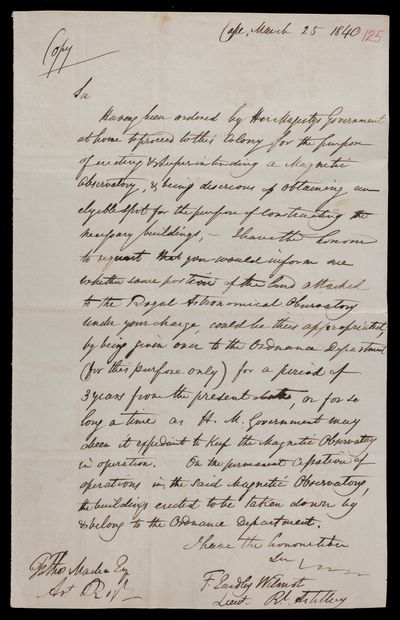 Cape, March 25 1840
125
Copy
Sir
Having been ordered by Her Majestys Government
at home to proceed to this Colony for the purpose
of erecting & Superintending a Magnetic
Observatory, & being desirous of obtaining an
elegible spot for the purpose of constructing the
necessary buildings, – I have the honour
to request that you would inform me
whether some portion of the land attached
to the Royal Astronomical Observatory
under your charge, could be thus appropriated,
by being given over to the Ordnance Department
(for this purpose only) for a period of
3 years from the present date, or for so
long a time as H. M. Government may
deem it expedient to keep the Magnetic Observatory
in operation. On the permanent cessation of
operations in the said Magnetic Observatory,
the buildings erected to be taken down by
& belong to the Ordnance Department.
I have the honour to be
Sir
F. Eardley Wilmot
Lieut. Rl. Artillery
Thos Maclear Esq